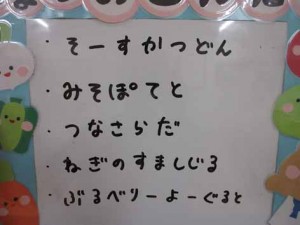 ・そーすかつどん
・みそぽてと
・つなさらだ
・ねぎのすましじる
・ぶるべりーよーぐると